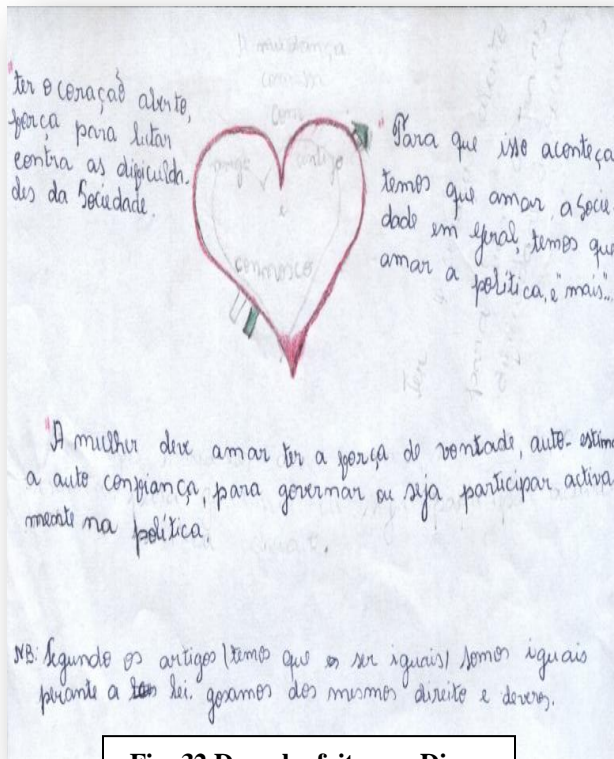 A mudança
começa
com
migo contigo
e
connosco
"ter o coração aberto,
força para lutar
contra as dificulda.
des da Sociedade.
"Para que isso aconteça
temos que amar a Socie-
dade em geral, temos que
amar a política, e "mais"..
"A mulher deve amar ter a força de vontade, auto-estima
a auto confiança, para governar ou seja participar activa
mente na política.
NB: Segundo os artigos (temos que os ser iguais) somos iguais
perante a lei. gosamos dos mesmos direito e deveres.